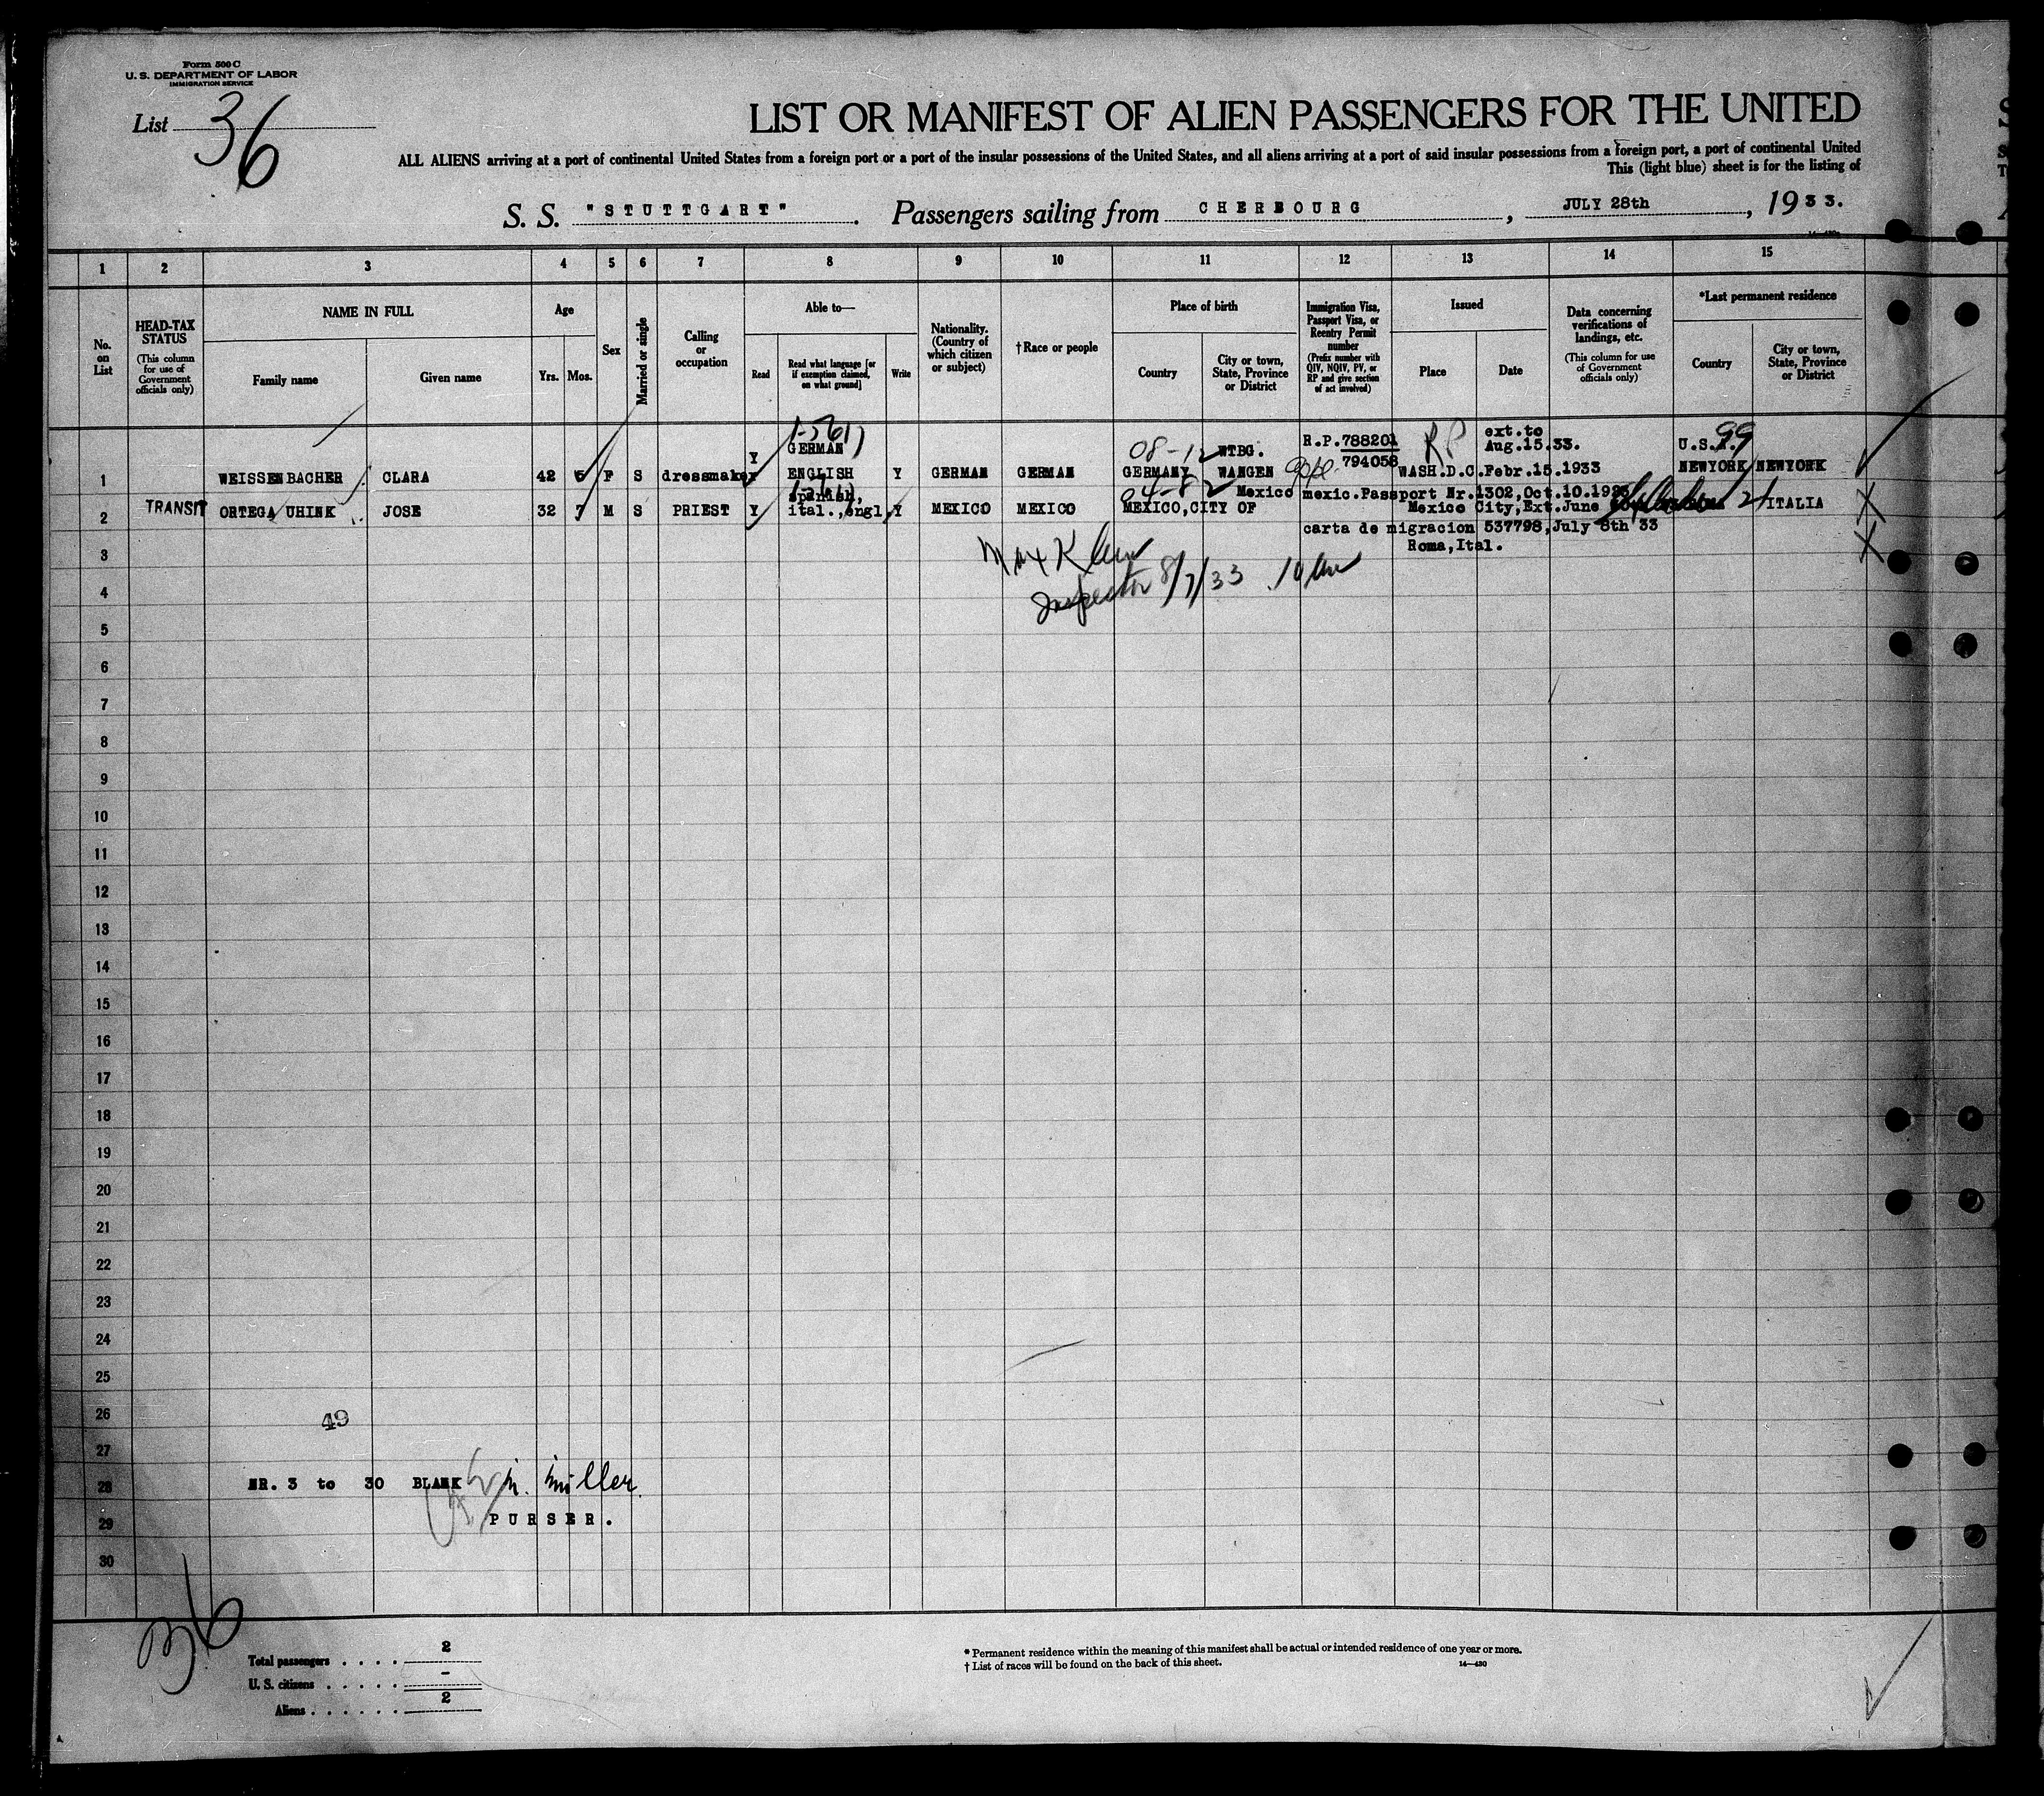 Form 500 C
U. S. DEPARTMENT OF LABOR
IMMIGRATION SERVICE
List 36
LIST OR MANIFEST OF ALIEN PASSENGERS FOR THE UNITED
ALL ALIENS arriving at a port of continental United States from a foreign port or a port of the insular possessions of the United States, and all aliens arriving at a port of said insular possessions from a foreign port, a port of continental United
This (light blue) sheet is for the listing of
S. S. "STUTTGART". Passengers sailing from CHERBOURG, JULY 28th, 1933.
1 2 3 4 5 6 7 8 9 10 11 12 13 14 15
No. on List
HEAD-TAX STATUS
(This column for use of Government officials only)
NAME IN FULL
Family name
Given name
Age
Yrs. Mos.
Sex
Married or single
Calling or occupation
Able to—
Read
Read what language [or if exemption claimed, on what ground]
Write
Nationality. (Country of which citizen or subject)
†Race or people
Place of birth
Country
City or town, State, Province or District
Immigration Visa, Passport Visa, or Reentry Permit number
(Prefix number with QIV, NQIV, PV, or RP and give section of act involved)
Issued
Place
Date
Data concerning verifications of landings, etc.
(This column for use of Government officials only)
*Last permanent residence
Country
City or town, State, Province or District
GERMAN 08-1 WTBG. R.P.788201 RP ext.to Aug.15.33. U.S.A. 99
1 WEISSENBACHER CLARA 42 5 F S dressmaker Y ENGLISH Y GERMAN GERMAN GERMANY WANGEN 794058 WASH.D.C.Febr.15.1933 NEWYORK NEWYORK
spanish, 04-8 Mexico mexic.Passport Nr.1302,Oct.10.192
2 TRANSIT ORTEGA UHINK JOSE 32 7 M S PRIEST Y ital.,engl Y MEXICO MEXICO MEXICO,CITY OF Mexico City,Ext.June ITALIA
carta de migracion 537798,July 8th 33
3 Roma,Ital.
Max Klein
Inspector 8/7/33 10 am
4
5
6
7
8
9
10
11
12
13
14
15
16
17
18
19
20
21
22
23
24
25
26
49
27
28 NR. 3 to 30 BLANK Müller.
29 PURSER.
30
36
Total passengers . . . . 2
U. S. citizens . . . . . –
Aliens . . . . . . 2
* Permanent residence within the meaning of this manifest shall be actual or intended residence of one year or more.
† List of races will be found on the back of this sheet.
14—430